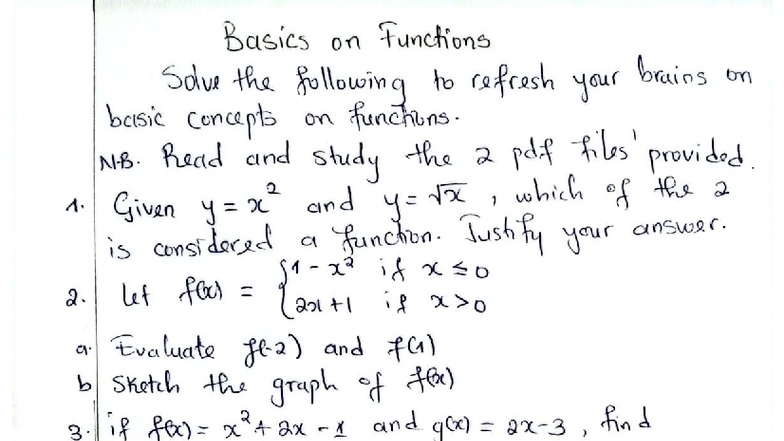 Basics on Functions
Solve the following to refresh your brains on
basic concepts on functions.
N.B. Read and study the 2 pdf files' provided.
1. Given y = x² and y = √x , which of the 2
is considered a function. Justify your answer.
2. Let f(x) = { 1 - x² if x ≤ 0
2x + 1 if x > 0
a. Evaluate f(-2) and f(1)
b Sketch the graph of f(x)
3. if f(x) = x² + 2x - 1 and g(x) = 2x - 3 , find